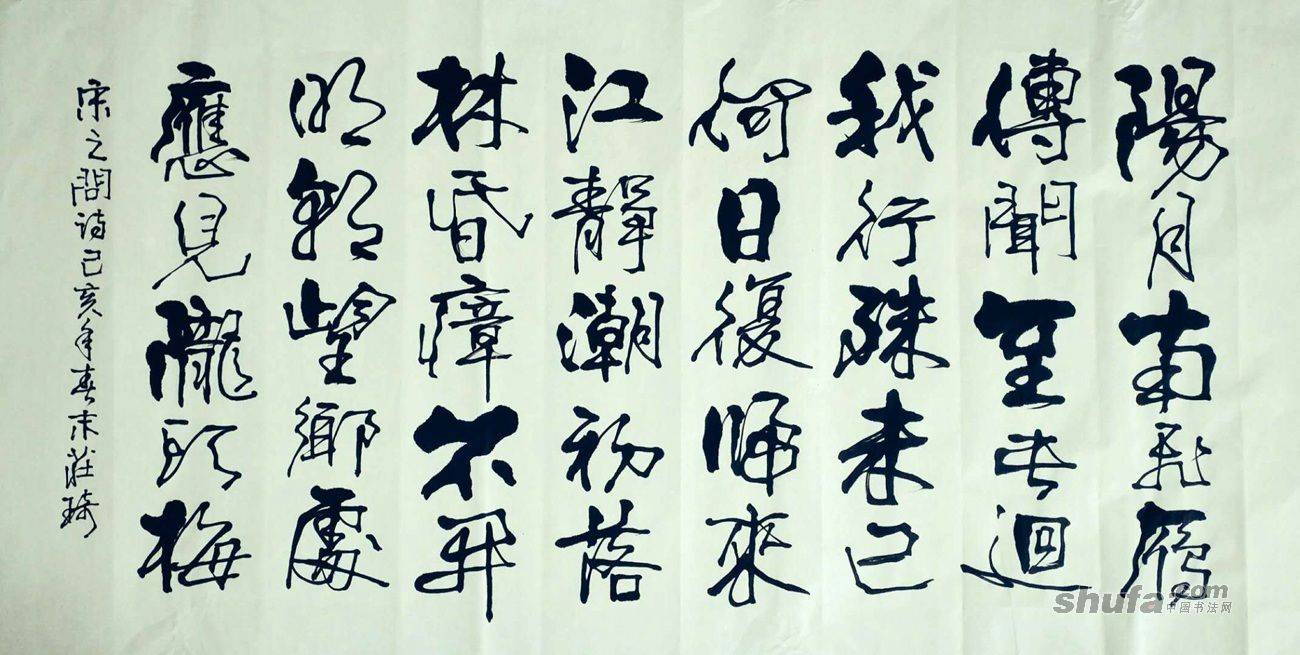 陽月南飛雁
傳聞至此迴
我行殊未已
何日復歸來
江靜潮初落
林昏瘴不開
明朝望鄉處
應見隴頭梅
宋之問诗己亥年春末莊琦
shufa.com
中国书法网